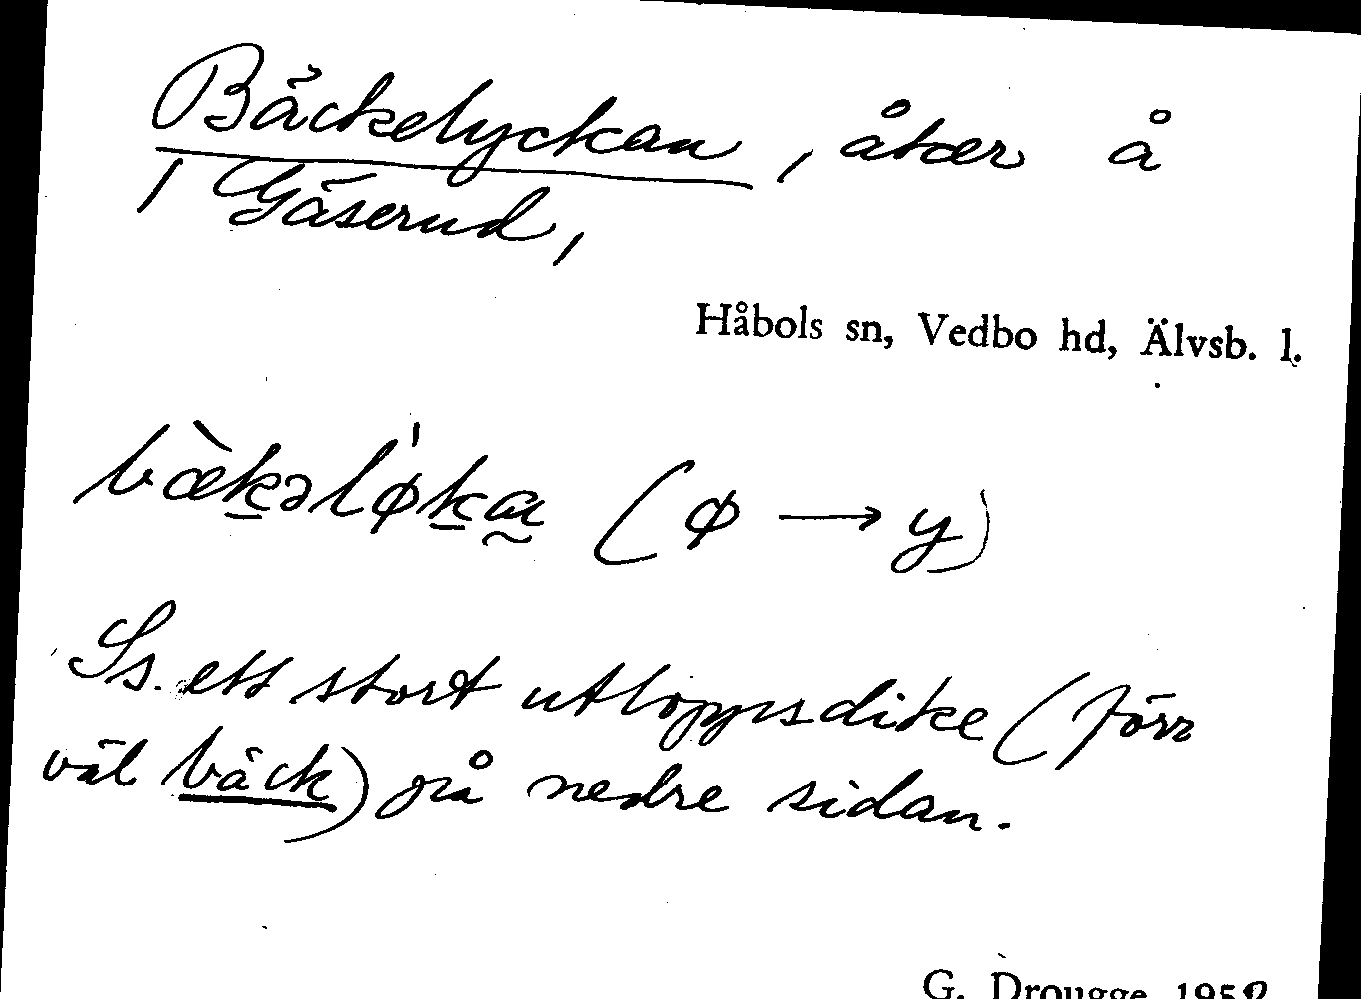 Bäckelyckan, åker å
1 Gäserud,
Håbols sn, Vedbo hd, Älvsb. l.
bæ̀kəlø̍ka (ø → y)
Ss. ett stort utloppsdike (förr
väl bäck) på nedre sidan.
G. Drougge 1952